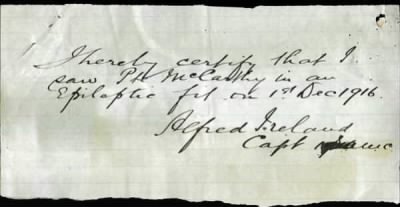 I hereby certify that I
saw Pte McCarthy in an
Epileptic fit on 1st Dec 1916.
Alfred Ireland
Capt